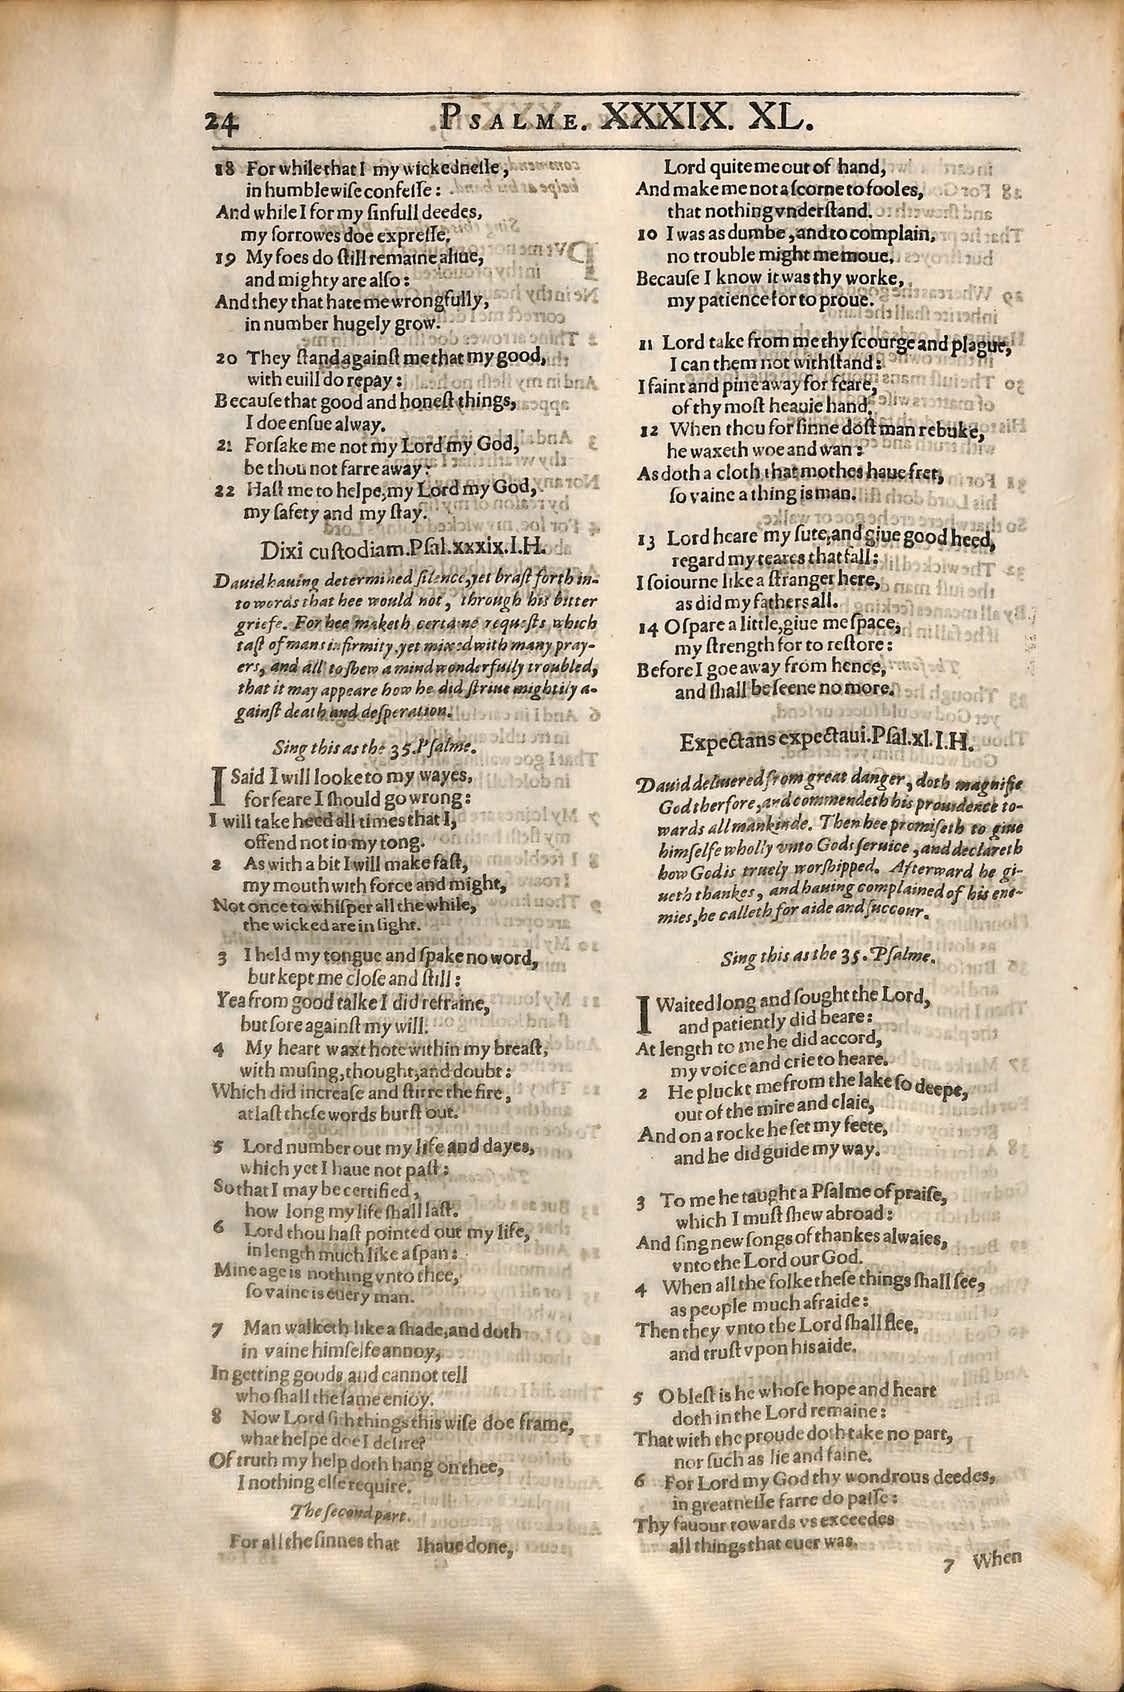 24 PSALME. XXXIX. XL.
18 For while that I my wickednesse,
in humble wise confesse:
And while I for my sinfull deedes,
my sorrowes doe expresse,
19 My foes do still remaine aliue,
and mighty are also:
And they that hate me wrongfully,
in number hugely grow.
20 They stand against me that my good,
with euill do repay:
Because that good and honest things,
I doe ensue alway.
21 Forsake me not my Lord my God,
be thou not farre away:
22 Hast me to helpe, my Lord my God,
my safety and my stay.
Dixi custodiam. Psal. xxxix. I. H.
Dauid hauing determined silence, yet brast forth in-
to words that hee would not, through his bitter
griefe. For hee maketh certaine requests which
tast of mans infirmity, yet mixed with many pray-
ers, and all to shew a mind wonderfully troubled,
that it may appeare how he did striue mightily a-
gainst death and desperation.
Sing this as the 35. Psalme.
I Said I will looke to my wayes,
for feare I should go wrong:
I will take heed all times that I,
offend not in my tong.
2 As with a bit I will make fast,
my mouth with force and might,
Not once to whisper all the while,
the wicked are in sight.
3 I held my tongue and spake no word,
but kept me close and still:
Yea from good talke I did refraine,
but sore against my will.
4 My heart waxt hote within my breast,
with musing, thought, and doubt:
Which did increase and stirre the fire,
at last these words burst out.
5 Lord number out my life and dayes,
which yet I haue not past:
So that I may be certified,
how long my life shall last.
6 Lord thou hast pointed out my life,
in length much like a span:
Mine age is nothing vnto thee,
so vaine is euery man.
7 Man walketh like a shade, and doth
in vaine himselfe annoy,
In getting goods and cannot tell
who shall the same enioy.
8 Now Lord sith things this wise doe frame,
what helpe doe I desire?
Of truth my help doth hang on thee,
I nothing else require.
The second part.
For all the sinnes that I haue done,
Lord quite me out of hand,
And make me not a scorne to fooles,
that nothing vnderstand.
10 I was as dumbe, and to complain,
no trouble might me moue,
Because I know it was thy worke,
my patience for to proue.
11 Lord take from me thy scourge and plague,
I can them not withstand:
I faint and pine away for feare,
of thy most heauie hand.
12 When thou for sinne dost man rebuke,
he waxeth woe and wan:
As doth a cloth that mothes haue fret,
so vaine a thing is man.
13 Lord heare my sute, and giue good heed,
regard my teares that fall:
I soiourne like a stranger here,
as did my fathers all.
14 O spare a little, giue me space,
my strength for to restore:
Before I goe away from hence,
and shall be seene no more.
Expectans expectaui. Psal. xl. I. H.
Dauid deliuered from great danger, doth magnifie
God therfore, and commendeth his prouidence to-
wards all mankinde. Then hee promiseth to giue
himselfe wholly vnto Gods seruice, and declareth
how God is truely worshipped. Afterward he gi-
ueth thankes, and hauing complained of his ene-
mies, he calleth for aide and succour.
Sing this as the 35. Psalme.
I Waited long and sought the Lord,
and patiently did beare:
At length to me he did accord,
my voice and crie to heare.
2 He pluckt me from the lake so deepe,
out of the mire and claie,
And on a rocke he set my feete,
and he did guide my way.
3 To me he taught a Psalme of praise,
which I must shew abroad:
And sing new songs of thankes alwaies,
vnto the Lord our God.
4 When all the folke these things shall see,
as people much afraide:
Then they vnto the Lord shall flee,
and trust vpon his aide.
5 O blest is he whose hope and heart
doth in the Lord remaine:
That with the proude doth take no part,
nor such as lie and faine.
6 For Lord my God thy wondrous deedes,
in greatnesse farre do passe:
Thy fauour towards vs exceedes
all things that euer was.
7 When